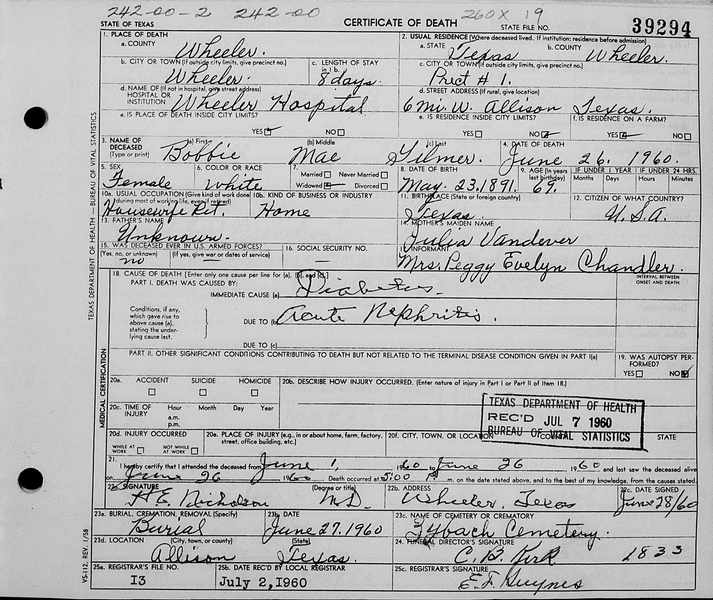 242-00-2 242-00 260X 19
STATE OF TEXAS CERTIFICATE OF DEATH STATE FILE NO. 39294
1. PLACE OF DEATH 2. USUAL RESIDENCE (Where deceased lived. If institution: residence before admission)
a. COUNTY Wheeler. a. STATE Texas b. COUNTY Wheeler.
b. CITY OR TOWN (If outside city limits, give precinct no.) c. LENGTH OF STAY in 1 b c. CITY OR TOWN (If outside city limits, give precinct no.)
Wheeler. 8 days. Prect #1.
d. NAME OF (If not in hospital, give street address) HOSPITAL OR INSTITUTION Wheeler Hospital d. STREET ADDRESS (If rural, give location)
6 mi. W. Allison Texas.
e. IS PLACE OF DEATH INSIDE CITY LIMITS? e. IS RESIDENCE INSIDE CITY LIMITS? f. IS RESIDENCE ON A FARM?
YES NO YES NO YES NO
3. NAME OF DECEASED (Type or print) (a) First Bobbie (b) Middle Mae (c) Last Gilmer. 4. DATE OF DEATH June 26, 1960.
5. SEX 6. COLOR OR RACE Married Never Married 8. DATE OF BIRTH 9. AGE (In years last birthday) IF UNDER 1 YEAR IF UNDER 24 HRS.
Female White Widowed Divorced May. 23. 1891. 69. Months Days Hours Minutes
10a. USUAL OCCUPATION (Give kind of work done during most of working life, even if retired) 10b. KIND OF BUSINESS OR INDUSTRY 11. BIRTHPLACE (State or foreign country) 12. CITIZEN OF WHAT COUNTRY?
Housewife Ret. Home Texas U.S.A.
13. FATHER'S NAME 14. MOTHER'S MAIDEN NAME
Unknown. Julia Vandever
15. WAS DECEASED EVER IN U.S. ARMED FORCES? 16. SOCIAL SECURITY NO. 17. INFORMANT
(Yes, no, or unknown) (If yes, give war or dates of service)
no — Mrs. Peggy Evelyn Chandler.
18. CAUSE OF DEATH [Enter only one cause per line for (a), (b), and (c).] INTERVAL BETWEEN ONSET AND DEATH
PART I. DEATH WAS CAUSED BY:
IMMEDIATE CAUSE (a) Diabetes
Conditions, if any, which gave rise to above cause (a), stating the underlying cause last. DUE TO (b) Acute Nephritis.
DUE TO (c)
PART II. OTHER SIGNIFICANT CONDITIONS CONTRIBUTING TO DEATH BUT NOT RELATED TO THE TERMINAL DISEASE CONDITION GIVEN IN PART I(a) 19. WAS AUTOPSY PERFORMED?
YES NO
20a. ACCIDENT SUICIDE HOMICIDE 20b. DESCRIBE HOW INJURY OCCURRED. (Enter nature of injury in Part I or Part II of item 18.)
20c. TIME OF INJURY Hour Month Day Year
a.m.
p.m.
TEXAS DEPARTMENT OF HEALTH
REC'D JUL 7 1960
BUREAU OF VITAL STATISTICS
20d. INJURY OCCURRED 20e. PLACE OF INJURY (e.g., in or about home, farm, factory, street, office building, etc.) 20f. CITY, TOWN, OR LOCATION COUNTY STATE
WHILE AT WORK NOT WHILE AT WORK
21. I hereby certify that I attended the deceased from June 1, 1960 to June 26 1960 and last saw the deceased alive
on June 26 1960. Death occurred at 5:00 m. on the date stated above, and to the best of my knowledge, from the causes stated.
22a. SIGNATURE (Degree or title) 22b. ADDRESS 22c. DATE SIGNED
H E Nicholson MD. Wheeler, Texas June 28/60
23a. BURIAL, CREMATION, REMOVAL (Specify) 23b. DATE 23c. NAME OF CEMETERY OR CREMATORY
Burial June 27. 1960 Zybach Cemetery.
23d. LOCATION (City, town, or county) (State) 24. FUNERAL DIRECTOR'S SIGNATURE
Allison Texas. C. B. Kirk 1833
25a. REGISTRAR'S FILE NO. 25b. DATE REC'D BY LOCAL REGISTRAR 25c. REGISTRAR'S SIGNATURE
13 July 2,1960
TEXAS DEPARTMENT OF HEALTH — BUREAU OF VITAL STATISTICS
MEDICAL CERTIFICATION
VS-112, REV. 1/58